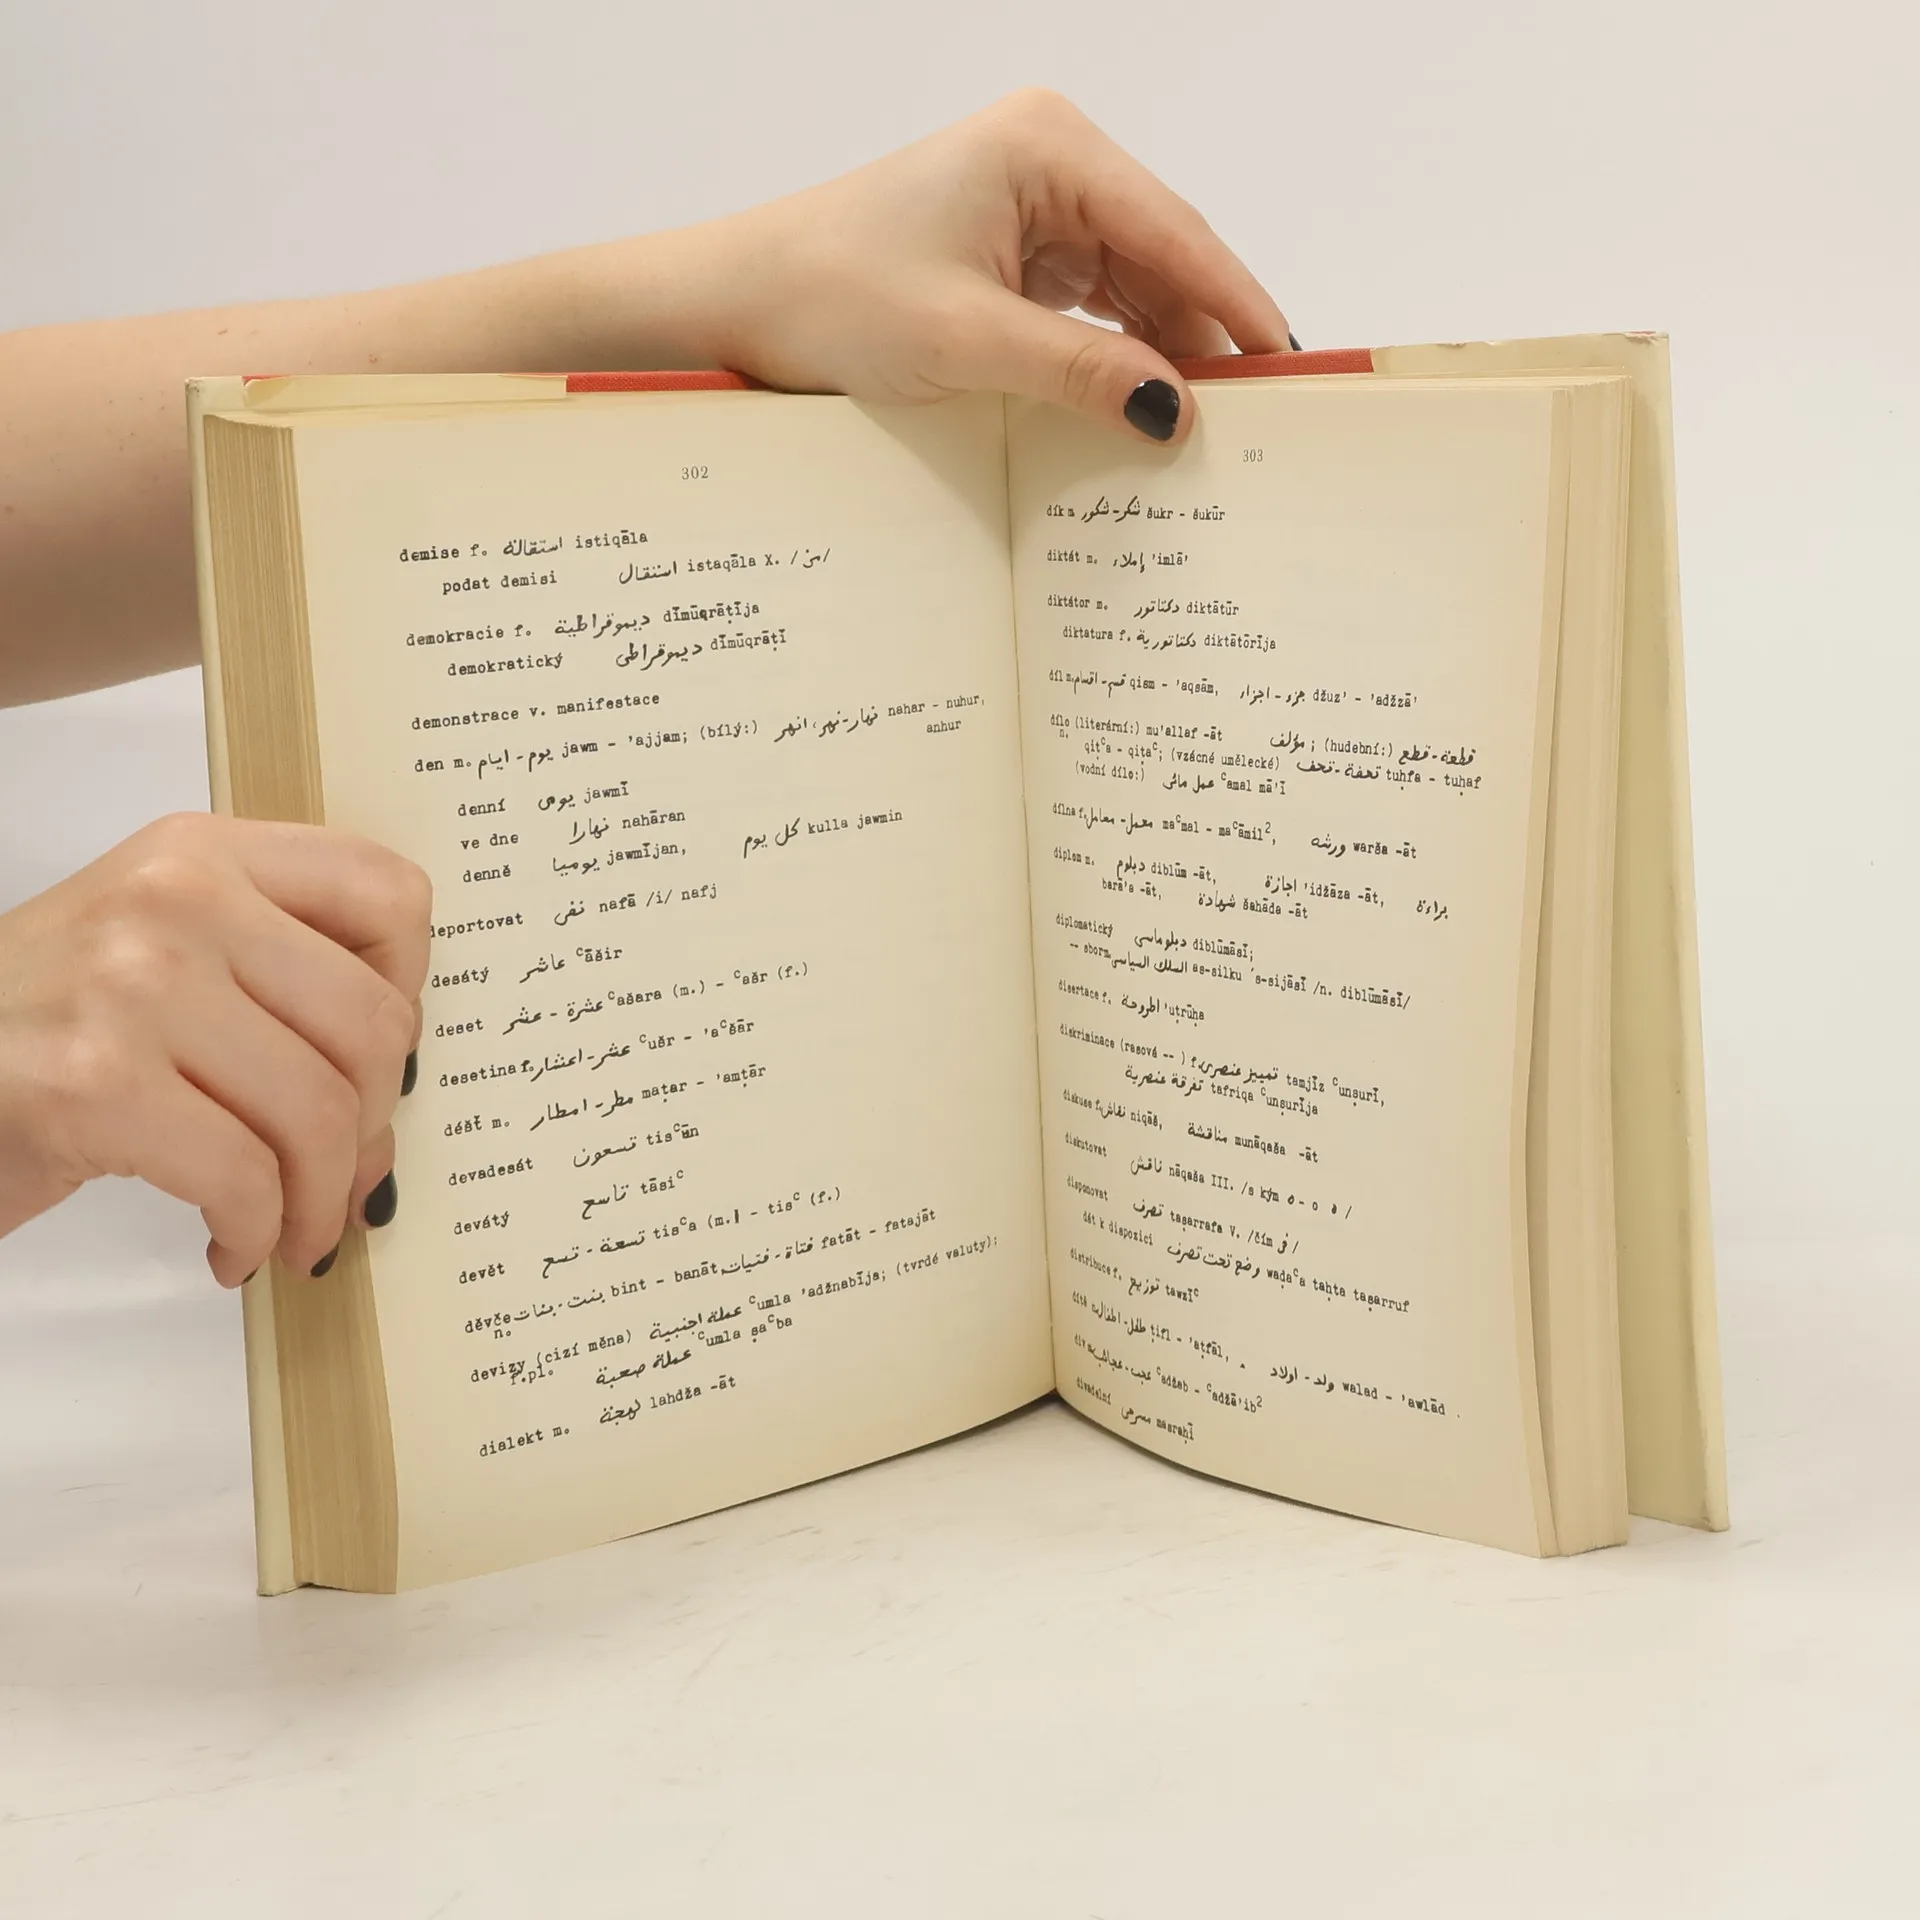 302
demise f. استقالة istiqāla
podat demisi استقال istaqāla X. /من/
demokracie f. ديموقراطية dīmūqrāṭīja
demokratický ديموقراطى dīmūqrāṭī
demonstrace v. manifestace
den m. يوم - ايام jawm - 'ajjam; (bílý:) نهار - نهر، انهر nahar - nuhur,
anhur
denní يومى jawmī
ve dne نهارا nahāran
denně يوميا jawmījan, كل يوم kulla jawmin
deportovat نفى nafā /i/ nafj
desátý عاشر ᶜāšir
deset عشرة - عشر ᶜašara (m.) - ᶜašr (f.)
desetina f. عشر - اعشار ᶜušr - 'aᶜšār
déšť m. مطر - امطار maṭar - 'amṭār
devadesát تسعون tisᶜūn
devátý تاسع tāsiᶜ
devět تسعة - تسع tisᶜa (m.) - tisᶜ (f.)
děvče بنت - بنات bint - banāt, فتاة - فتيات fatāt - fatajāt
n.
devizy (cizí měna) عملة اجنبية ᶜumla 'adžnabīja; (tvrdé valuty):
f.pl. عملة صعبة ᶜumla ṣaᶜba
dialekt m. لهجة lahdža -āt
303
dík m شكر - شكور šukr - šukūr
diktát m. إملاء 'imlā'
diktátor m. دكتاتور diktātūr
diktatura f. دكتاتورية diktātōrīja
díl m. قسم - اقسام qism - 'aqsām, جزء - اجزاء džuz' - 'adžzā'
dílo (literární:) mu'allaf -āt مؤلف ; (hudební:) قطعة - قطع
n. qiṭᶜa - qiṭaᶜ; (vzácné umělecké) تحفة - تحف tuḥfa - tuḥaf
(vodní dílo:) عمل مائى ᶜamal mā'ī
dílna f. معمل - معامل maᶜmal - maᶜāmil², ورشه warša -āt
diplom m. دبلوم diblūm -āt, اجازة 'idžāza -āt, براءة
barā'a -āt, شهادة šahāda -āt
diplomatický دبلوماسى diblūmāsī;
-- sbor m. السلك السياسى as-silku ´s-sijāsī /n. diblūmāsī/
disertace f. اطروحة 'uṭrūḥa
diskriminace (rasová -- ) f. تمييز عنصرى tamjīz ᶜunṣurī,
تفرقة عنصرية tafriqa ᶜunṣurīja
diskuse f. نقاش niqāš, مناقشة munāqaša -āt
diskutovat ناقش nāqaša III. /s kým ه - ه /
disponovat تصرف taṣarrafa V. /čím فى /
dát k dispozici وضع تحت تصرف waḍaᶜa taḥta taṣarruf
distribuce f. توزيع tawzīᶜ
dítě n. طفل - اطفال ṭifl - 'aṭfāl, ولد - اولاد walad - 'awlād .
div m. عجب - عجائب ᶜadžab - ᶜadžā'ib²
divadelní مسرحى masraḥī